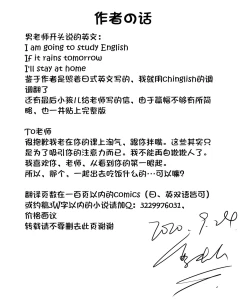 作者の话
男老师开头说的英文：
I am going to study English
If it rains tomorrow
I'll stay at home
鉴于作者是照着日式英文写的，我就用Chinglish的调调翻了
还有最后小孩儿给老师写的信，由于篇幅不够有所简略，也一并贴上完整版
To老师
很抱歉我老在你的课上淘气、跟你拌嘴。这些其实只是为了吸引你的注意力而已。我不能再勾啦啦人了。
我喜欢你，老师，从看到你的第一眼起。
所以、那个、一起出去吃饭什么的…可以嘛？
翻译页数在一百页以内的comics（日、英双语皆可）或约稿3W字以内的小说请加Q：3229976031，价格面议
转载请不要删去此页谢谢
2020.9.24